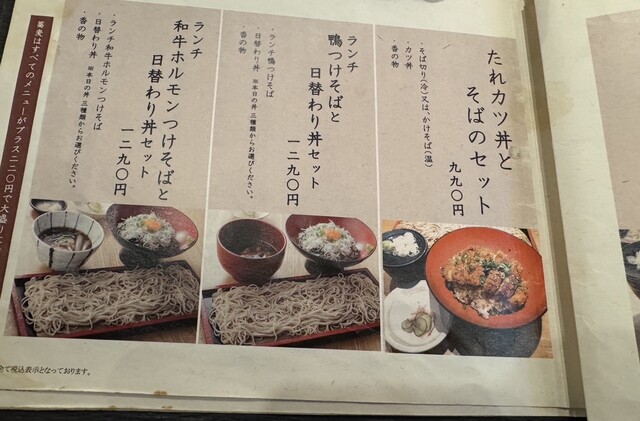 たれカツ丼と
そばのセット
九九〇円
・そば切り(冷)又は、かけそば(温)
・カツ丼
・香の物
ランチ
鴨つけそばと
日替わり丼セット
一二九〇円
・ランチ鴨つけそば
・日替わり丼 ※本日の丼 三種類からお選びください。
・香の物
ランチ
和牛ホルモンつけそばと
日替わり丼セット
一二九〇円
・ランチ和牛ホルモンつけそば
・日替わり丼 ※本日の丼 三種類からお選びください。
・香の物
蕎麦はすべてのメニューがプラス二二〇円で大盛り
全て税込表示となっております。